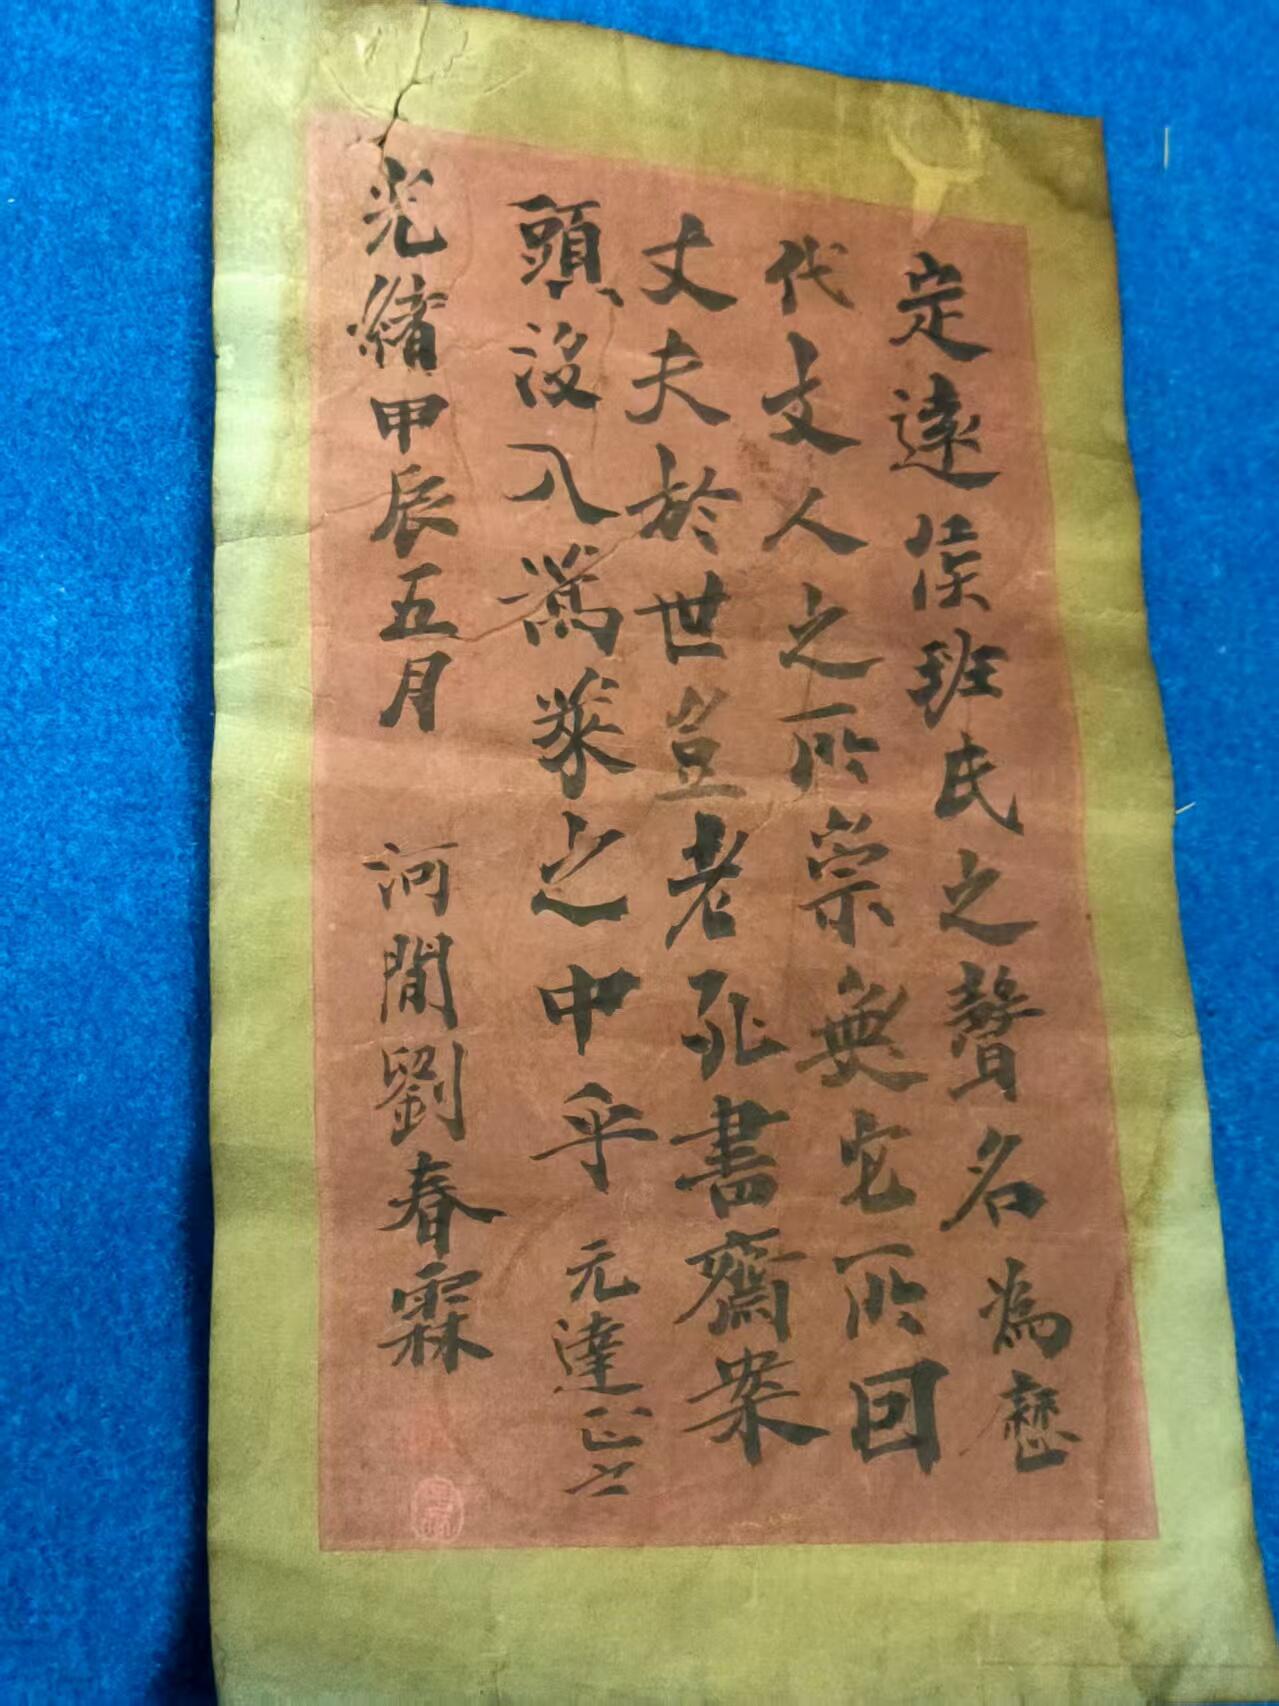 定遠侯班氏之聲名為歷
代文人之所崇無它所因
丈夫於世豈老孔書齋案
頭沒入蒿萊之中乎 元達正之
光緒甲辰五月 河間劉春霖